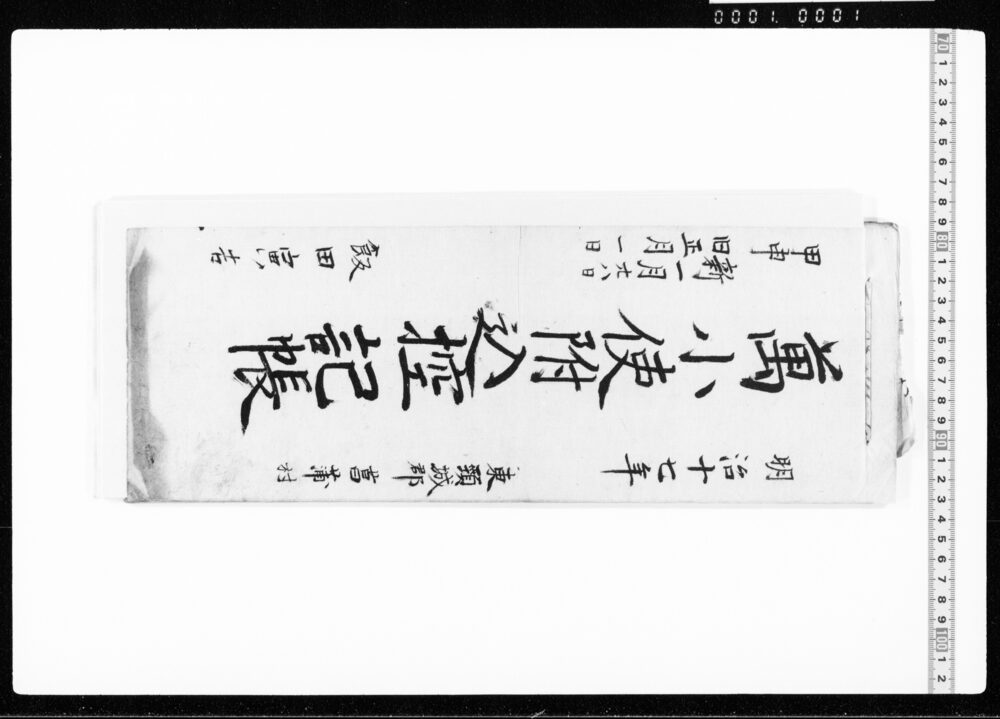 0001. 0001
明治十七年
東頸城郡菖蒲村
萬小使附込控記帳
甲申
新一月廿八日
旧正月一日
飯田寅吉
70 1 2 3 4 5 6 7 8 9 80 1 2 3 4 5 6 7 8 9 90 1 2 3 4 5 6 7 8 9 100 1 2